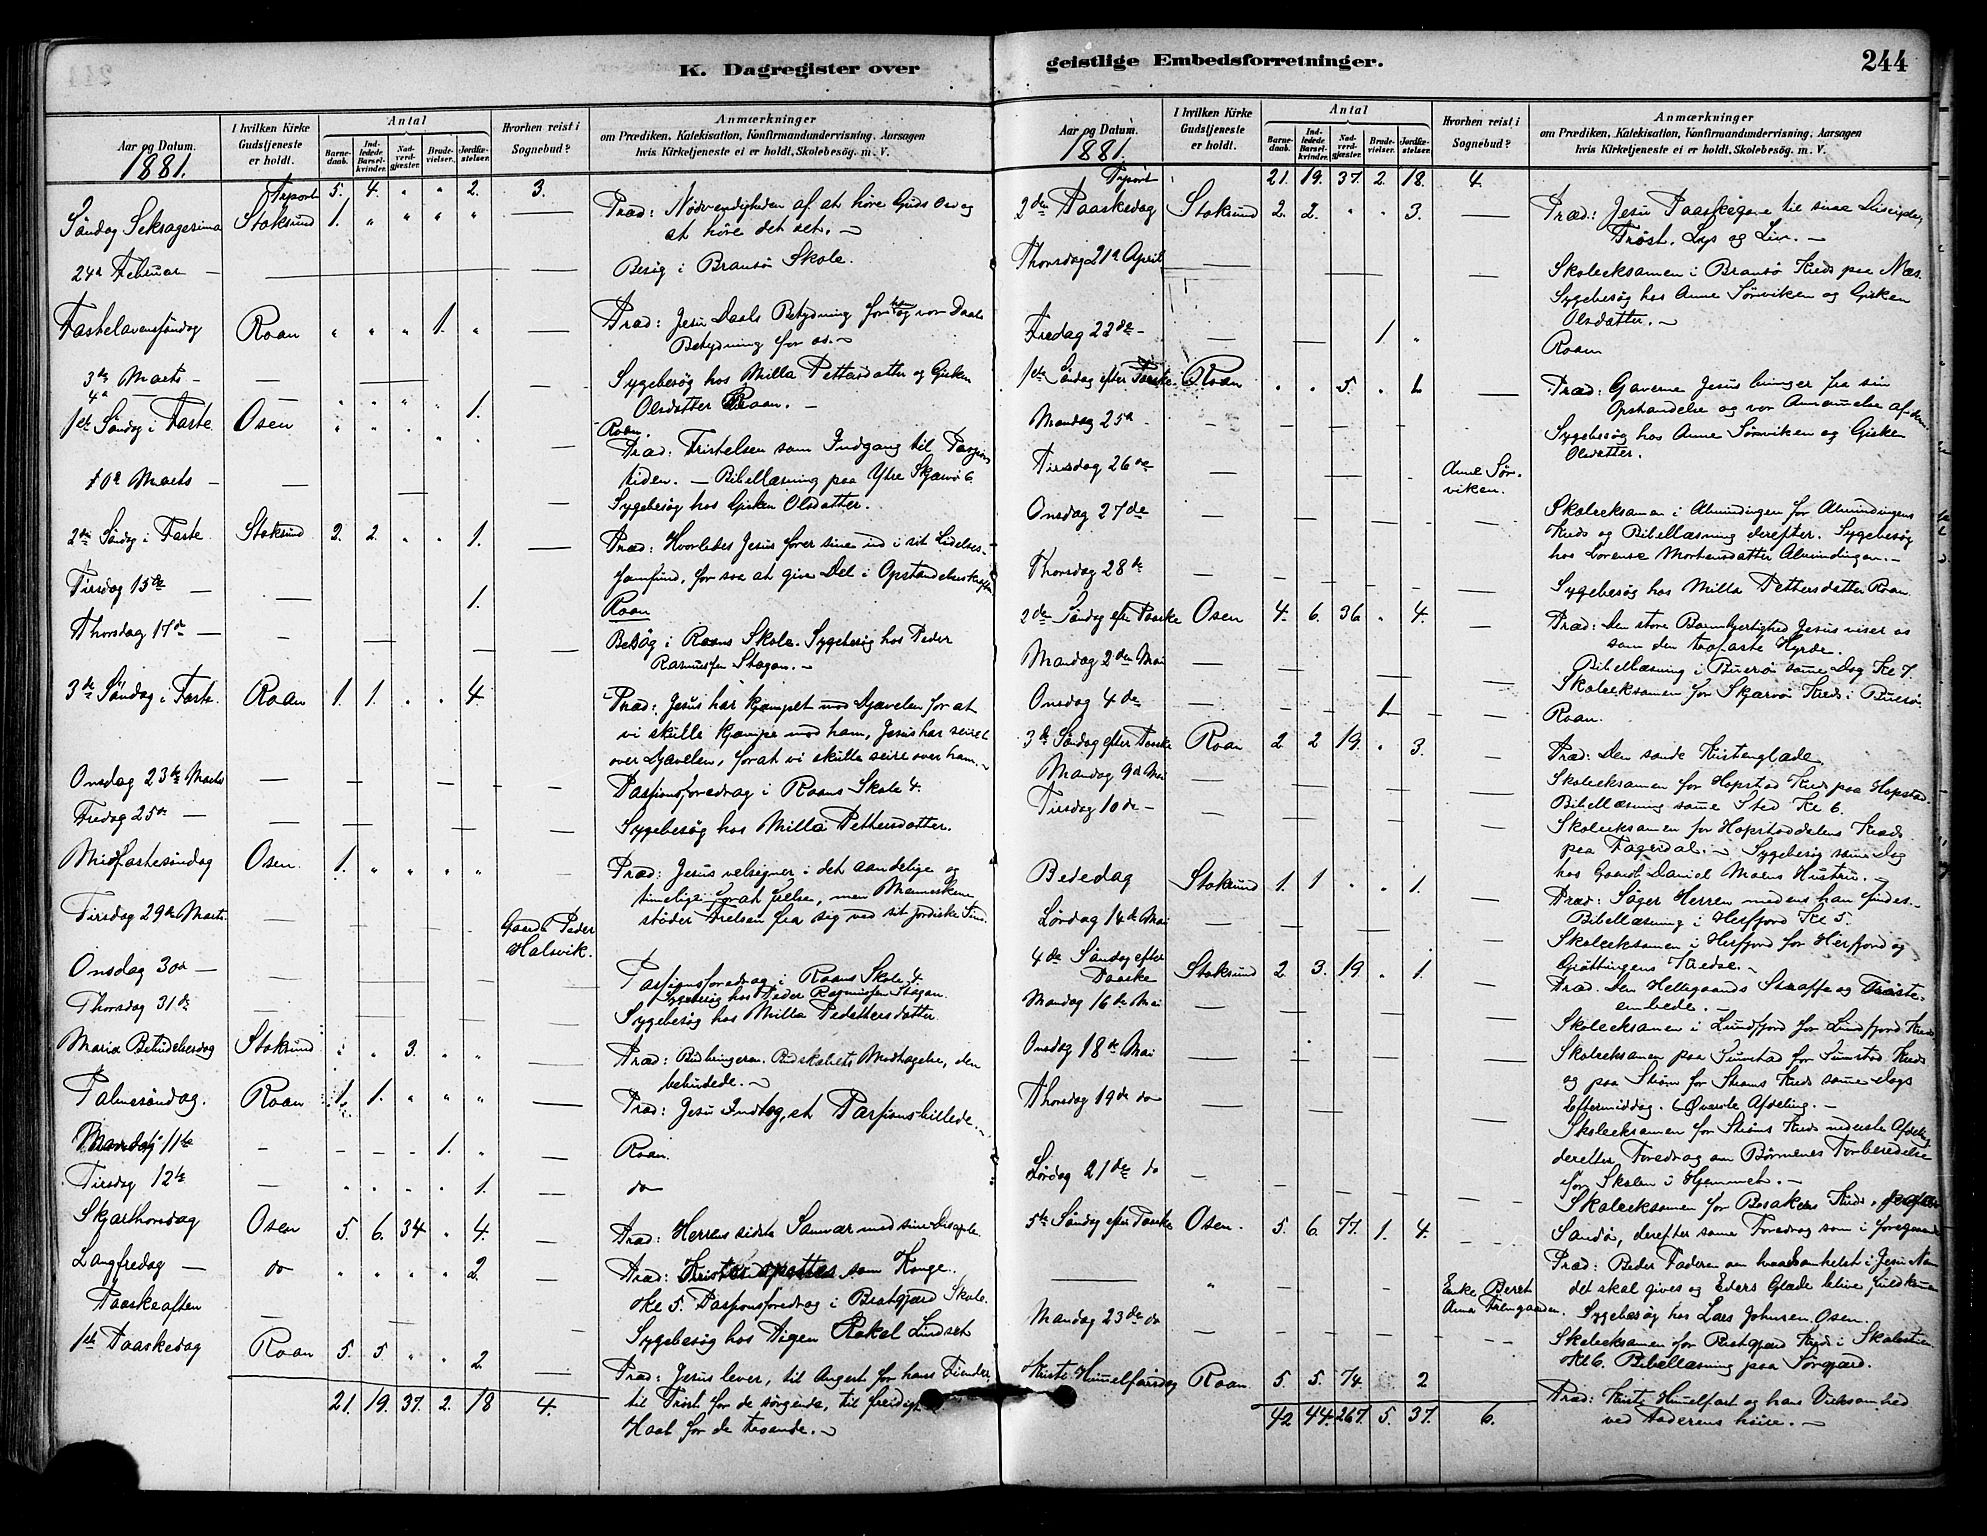 K. Dagregister over
geistlige Embedsforretninger.
244
Aar og Datum.
1881.
I hvilken Kirke Gudstjeneste er holdt.
Antal
Barnedaab.
Indledede Barselkvinder.
Nadverdgjæster.
Brudevielser.
Jordfæstelser.
Hvorhen reist i Sognebud?
Anmærkninger
om Prædiken, Katekisation, Konfirmandundervisning, Aarsagen
hvis Kirketjeneste ei er holdt, Skolebesøg. m. V.
Trsport 5. 4. " " 2. 3.
Søndag Seksagesima Stoksund 1. " " " " — Præd: Nødvendigheden af at høre Guds Ord og
at høre det ret. —
24de Februar — Besøg i Bransø Skole.
Fastelavenssøndag Roan " " " 1. " — Præd: Jesu Daabs Betydning for ham og vor Daabs
Betydning for os. —
3die Marts — Sygebesøg hos Milla Pettersdatter og Gisken
Olsdatter Roan. —
4de — " " " " 1. Roan.
1ste Søndag i Faste Osen " " " " Præd: Fristelsen som Indgang til Passions
tiden. — Bibellæsning paa Ytre Skjærvø 6.
10de Marts — Sygebesøg hos Gisken Olsdatter.
2den Søndag i Faste Stoksund 2. 2. " " 1. — Præd: Hvorledes Jesus fører sine ind i sit Lidelses-
samfund, for saa at give Del i Opstandelseskraften
Tirsdag 15de — 1. Roan
Thorsdag 17de — Besøg i Roans Skole. Sygebesøg hos Peder
Rasmussen Stagan. —
3die Søndag i Faste Roan 1. 1. " " 4. — Præd: Jesus har kjæmpet mod Djævelen for at
vi skulle kjæmpe mod ham, Jesus har seiret
over Djævelen, forat vi skulle seire over ham. —
Onsdag 23de Marts — Passionsforedrag i Roans Skole 4.
Fredag 25de — Sygebesøg hos Milla Pettersdatter.
Midfastesøndag Osen. 1. " " " " — Præd: Jesus velsigner i det aandelige og
timelige forat frelse, men Mennesket
støder Frelsen fra sig ved sit jordiske Sind.
Tirsdag 29de Marts. — Gaardb. Peder
Halsvik.
Onsdag 30de — Passionsforedrag i Roans Skole 4.
Sygebesøg hos Peder Rasmussen Stagan.
Thorsdag 31de — Sygebesøg hos Milla Pedettersdatter
Mariæ Bebudelsesdag Stoksund " " 3. " " — Præd: Budbringeren. Budskabets Modtagelse, den
bebudede. —
Palmesøndag. Roan 1. 1. " " " — Præd: Jesu Indtog, et Passionsbillede. —
Mandag 11te — 1. — Roan.
Tirsdag 12te — " " " " 1. — do
Skjærthorsdag Osen 5. 6. 34. " 4. — Præd: Herrens sidste Samvær med sine Disciple.
Langfredag — do " " " " 2. — Præd: som Konge.
Kl 5. Passionsforedrag i Bratgjærd Skole.
Paaskeaften — Sygebesøg hos Pigen Rakel Lindset
1ste Paaskedag Roan 5. 5. " " 2 — Præd: Jesus lever, til Angest for hans Fiender,
til Trøst for de sørgende, til freidigt
Haab for de troende. —
21. 19. 37. 2. 18 4.
Aar og Datum.
1881.
I hvilken Kirke Gudstjeneste er holdt.
Antal
Barnedaab.
Indledede Barselkvinder.
Nadverdgjæster.
Brudevielser.
Jordfæstelser.
Hvorhen reist i Sognebud?
Anmærkninger
om Prædiken, Katekisation, Konfirmandundervisning, Aarsagen
hvis Kirketjeneste ei er holdt, Skolebesøg. m. V.
Trsport 21. 19. 37. 2. 18. 4.
2den Paaskedag Stoksund 2. 2. " " 3. — Præd: Jesu Paaskegave til sine Disciple,
Trøst, Lys og Liv. —
Thorsdag 21de April — Skoleeksamen i Bransø Kreds paa Næs.
Sygebesøg hos Anne Sørviken og Gisken
Olsdatter. —
Fredag 22de — 1 " Roan
1ste Søndag efter Paaske Roan " " 5. " 1 — Præd: Gaverne Jesus bringer fra sin
Opstandelse og vor Annamelse af dem.
Mandag 25de — Sygebesøg hos Anne Sørviken og Gisken
Olsdatter.
Tirsdag 26de — Anne Sør-
viken.
Onsdag 27de — Skoleeksamen i Almindingen for Almindingens
Kreds og Bibellæsning derefter. Sygebesøg
hos Lorense Mortensdatter Almindingen. —
Thorsdag 28de — Sygebesøg hos Milla Pettersdatter Roan
2den Søndag efter Paaske Osen 4. 6. 36 " 4. — Præd: Den store Barmhjertighed Jesus viser os
som den trofaste Hyrde.
Bibellæsning i Buesø same Dag Kl 7.
Mandag 2den Mai — Skoleeksamen for Skjærvø Kreds i Buesø.
Onsdag 4de — 1 — Roan.
3die Søndag efter Paaske Roan 2 2 19. " 3. — Præd: Den sande Kristenglæde.
Mandag 9de Mai — Skoleeksamen for Hopstad Kreds paa Hopstad.
Bibellæsning same Sted Kl 6.
Tirsdag 10de — Skoleeksamen for Hopstaddalens Kreds
paa Fagerdal. — Sygebesøg same Dag
hos Gaardb. Daniel Moens Hustru. —
Bededag Stoksund 1. 1 " " 1. — Præd: Søger Herren medens han findes. —
Bibellæsning i Herfjord Kl 5.
Lørdag 14de Mai — Skoleeksamen i Herfjord for Herfjord og
Grøttingens Kredse. —
4de Søndag efter
Paaske Stoksund 2. 3. 19 " 1. — Præd. Den Helligaands Straffe og Trøste-
embede. —
Mandag 16de Mai — Skoleeksamen i Lundfjord for Lundfjord Kreds
Onsdag 18de Mai — Skoleeksamen paa Sumstad for Sumstad Kreds
og paa Strøm for Strøms Kreds same Dags
Eftermiddag. Øverste Afdeling. —
Thorsdag 19de do — Skoleeksamen for Strøms Kreds nederste Afdeling
derefter Foredrag om Børnenes Forberedelse
for Skolen i Hjemmet. —
Lørdag 21de do — Skoleeksamen for Besakers Kreds
Sandø, derefter same Foredrag som i foregaaende
5te Søndag efter Paaske Osen. 5. 6. 77. 1. 4. — Præd: Beder Faderen om hvadsomhelst i Jesu Navn
det skal gives og Eders Glæde blive fuldkommen
— " — Enke Beret
Anna Sygebesøg hos Lars Johnsen Osen.
Mandag 23de do — Skoleeksamen for Bratgjærd Kreds i Skolestuen
Kl 6. Bibellæsning paa Sørgjærd.
Kristi Himmelfartsdag Roan 5. 5. 74. 2 Præd: Kristi Himmelfart og hans Virksomhed
ved Faderens høire. —
42 44. 267. 5. 37. 6.